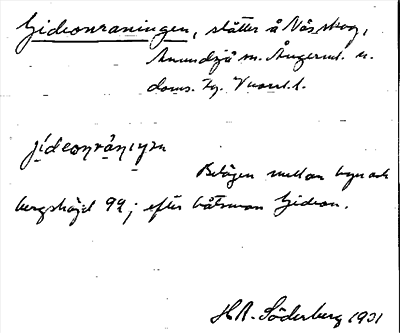 Gideonraningen, slåtter å Näs skog,
Anundsjö sn. Ångerml. n.
doms. fg. Vnorrl. l.
jídeonrȧ́nıŋɛn
Belägen mellan byn och
bergshöjd 99; efter båtsman Gideon.
H. A. Söderberg 1931